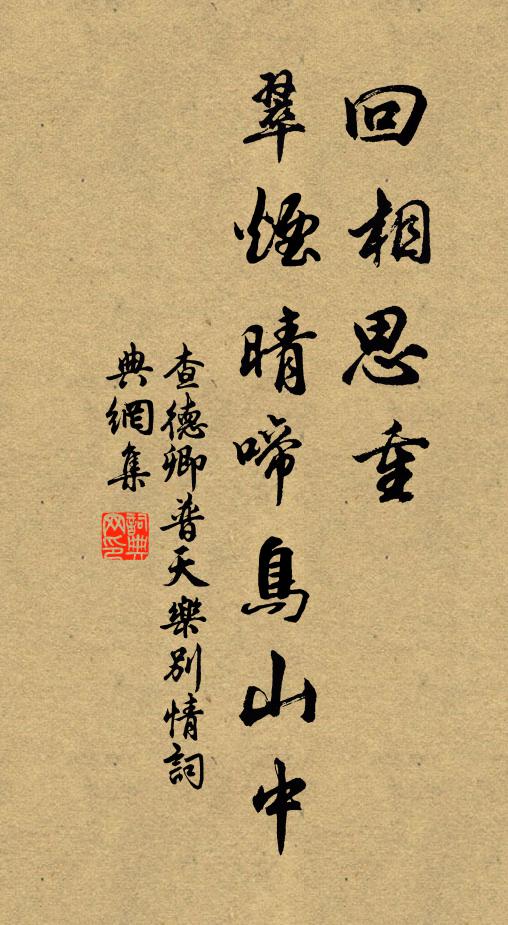 回相思重
翠煙晴啼鳥山中
查德卿普天樂別情詞
典網集
詞典網印